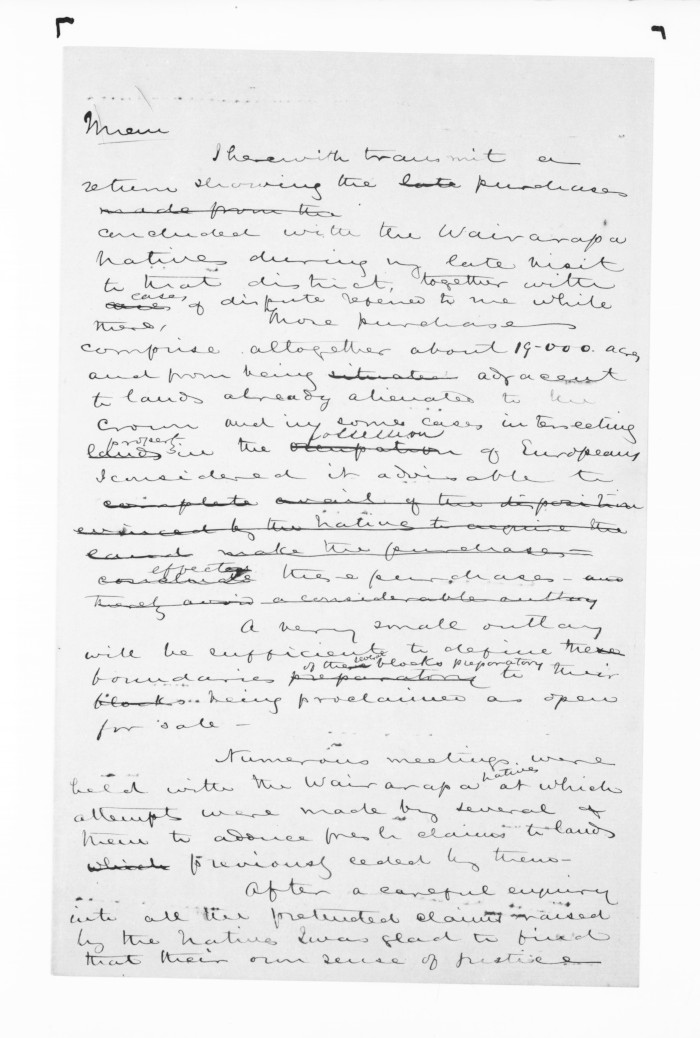 Mem
I herewith transmit a
return showing the late purchases
made from the
concluded with the Wairarapa
Natives during my late visit
to that district, together with
cases
of dispute referred to me while
there, These purchases
comprise altogether about 19-000. acres
and from being situated adjacent
to lands already alienated to the
Crown and in some cases intersecting
property possession
lands in the occupation of Europeans
I considered it advisable to
complete avail of the disposition
evinced by the Natives to acquire the
land make the purchases =
effected
conclude these purchases - and
thereby avoid a considerable outlay
A very small outlay
will be sufficient to define these
of these blocks preparatory
boundaries preparatory to their
blocks being proclaimed as open
for sale -
Numerous meetings were
natives
held with the Wairarapa at which
attempts were made by several of
them to adduce fresh claims to lands
which previously ceded by them -
After a careful enquiry
into all the pretended claims raised
by the Natives I was glad to find
that their own sense of justice